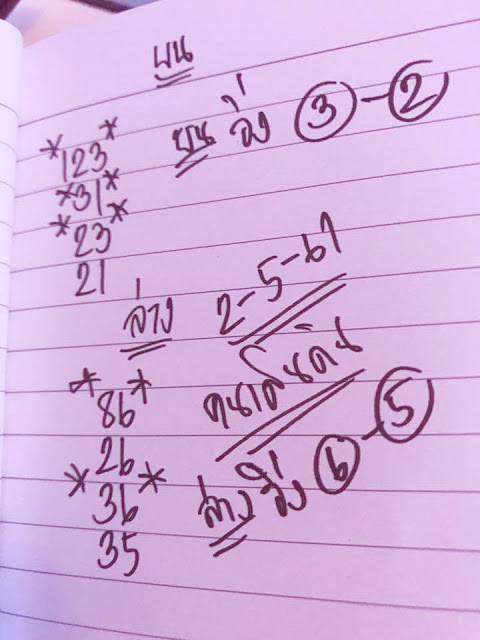 บน
*123* บน วิ่ง 3-2
*31*
*23*
21
ล่าง 2-5-61
*86* คนเดินดิน
26
*36* ล่าง วิ่ง 6-5
35